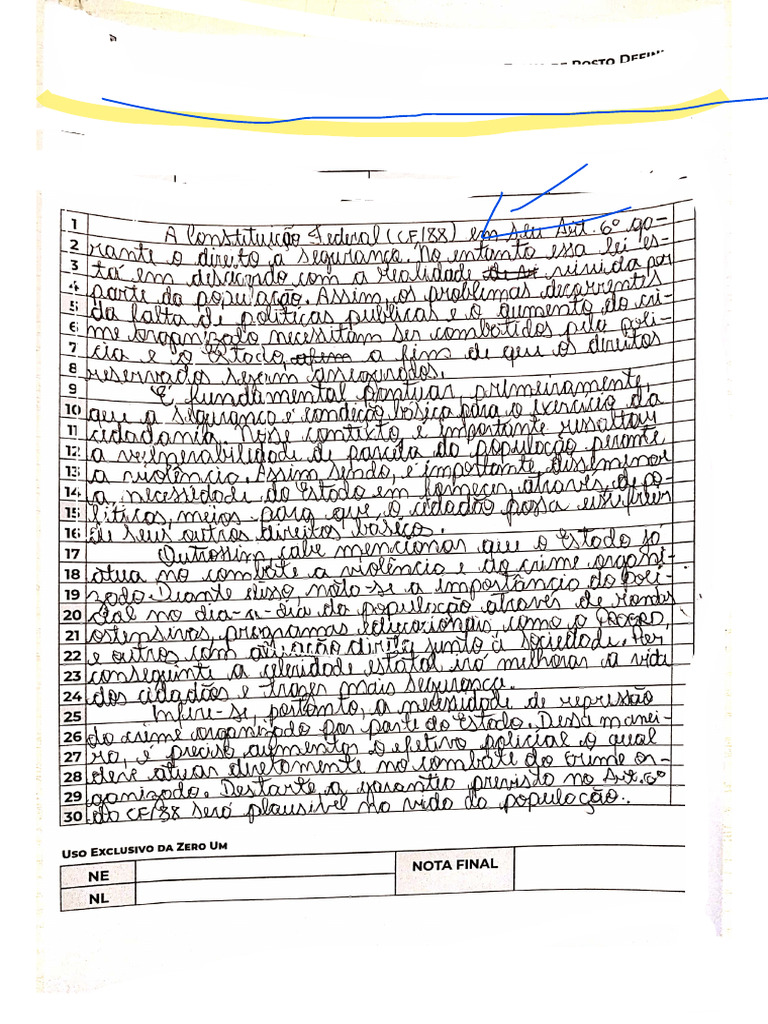 DE POSTO DEFINI
1 A Constituição Federal (CF/88) em seu Art. 6º ga-
2 rante o direito à segurança. No entanto essa lei es-
3 tá em desacordo com a realidade vivida por
4 parte da população. Assim, os problemas decorrentes
5 da falta de políticas públicas e o aumento do cri-
6 me organizado necessitam ser combatidos pela polí-
7 cia e o Estado, a fim de que os direitos
8 reservados sejam assegurados.
9 É fundamental pontuar, primeiramente,
10 que a segurança é condição básica para o exercício da
11 cidadania. Nesse contexto é importante ressaltar
12 a vulnerabilidade de parcela da população perante
13 a violência. Assim sendo, é importante disseminar
14 a necessidade do Estado em fornecer, através de po-
15 líticas, meios para que, o cidadão possa usufruir
16 de seus outros direitos básicos.
17 Outrossim, cabe mencionar que o Estado já
18 atua no combate a violência e do crime organi-
19 zado. Diante disso, nota-se a importância do poli-
20 cial no dia-a-dia da população através de rondas
21 ostensivas, programas educacionais como o PROERD,
22 e outros com atuação direta junto à sociedade. Por
23 conseguinte a celeridade estatal irá melhorar a vida
24 dos cidadãos e trazer mais segurança.
25 Infire-se, portanto, a necessidade de repressão
26 do crime organizado por parte do Estado. Dessa manei-
27 ra, é preciso aumentar o efetivo policial o qual
28 deve atuar diretamente no combate do crime or-
29 ganizado. Destarte a garantia prevista no Art. 6º
30 da CF/88 será plausível na vida da população.
USO EXCLUSIVO DA ZERO UM
NE
NOTA FINAL
NL